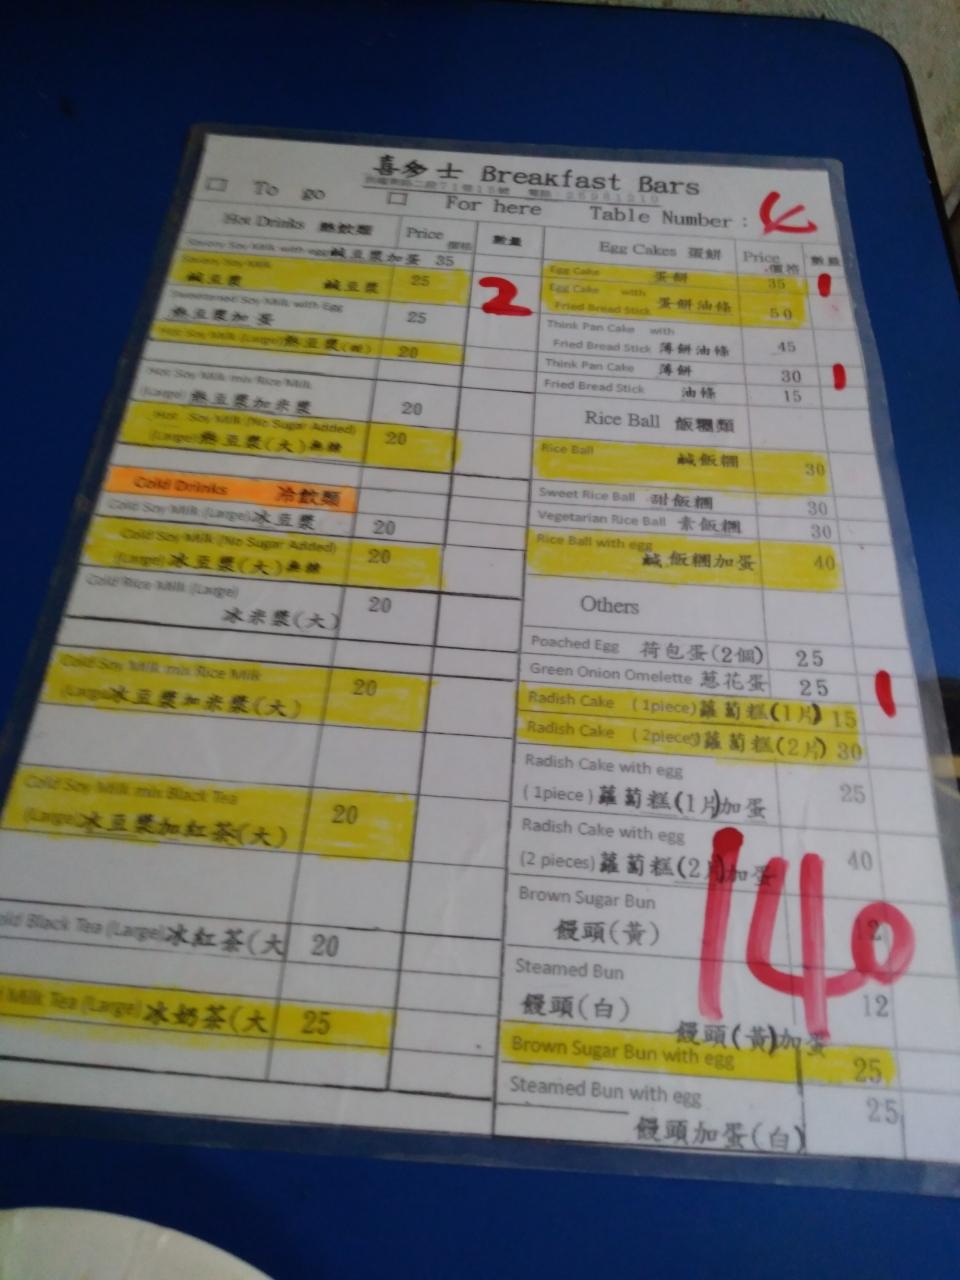 喜多士 Breakfast Bars
To go For here Table Number :
Hot Drinks 熱飲類 Price 價格 數量
Savory Soy Milk with egg 鹹豆漿加蛋 35
Savory Soy Milk
鹹豆漿 鹹豆漿 25 2
Sweetened Soy Milk with Egg
熱豆漿加蛋 25
Hot Soy Milk (Large) 熱豆漿 20
Hot Soy Milk mix Rice Milk
(Large) 熱豆漿加米漿 20
Hot Soy Milk (No Sugar Added)
(Large) 熱豆漿(大)無糖 20
Cold Drinks 冷飲類
Cold Soy Milk (Large) 冰豆漿 20
Cold Soy Milk (No Sugar Added)
(Large) 冰豆漿(大)無糖 20
Cold Rice Milk (Large)
冰米漿(大) 20
Cold Soy Milk mix Rice Milk
(Large) 冰豆漿加米漿(大) 20
Cold Soy Milk mix Black Tea
(Large) 冰豆漿加紅茶(大) 20
Black Tea (Large) 冰紅茶(大 20
Milk Tea (Large) 冰奶茶(大 25
Egg Cakes 蛋餅 Price 價格 數量
Egg Cake 蛋餅 35 1
Egg Cake with
Fried Bread Stick 蛋餅油條 50
Think Pan Cake with
Fried Bread Stick 薄餅油條 45
Think Pan Cake 薄餅 30 1
Fried Bread Stick 油條 15
Rice Ball 飯糰類
Rice Ball 鹹飯糰 30
Sweet Rice Ball 甜飯糰 30
Vegetarian Rice Ball 素飯糰 30
Rice Ball with egg
鹹飯糰加蛋 40
Others
Poached Egg 荷包蛋(2個) 25
Green Onion Omelette 蔥花蛋 25 1
Radish Cake (1piece) 蘿蔔糕(1片) 15
Radish Cake (2piece) 蘿蔔糕(2片) 30
Radish Cake with egg
(1piece) 蘿蔔糕(1片)加蛋 25
Radish Cake with egg
(2 pieces) 蘿蔔糕(2片)加蛋 40
Brown Sugar Bun
饅頭(黃) 12
140
Steamed Bun
饅頭(白) 12
饅頭(黃)加蛋
Brown Sugar Bun with egg 25
Steamed Bun with egg
饅頭加蛋(白) 25